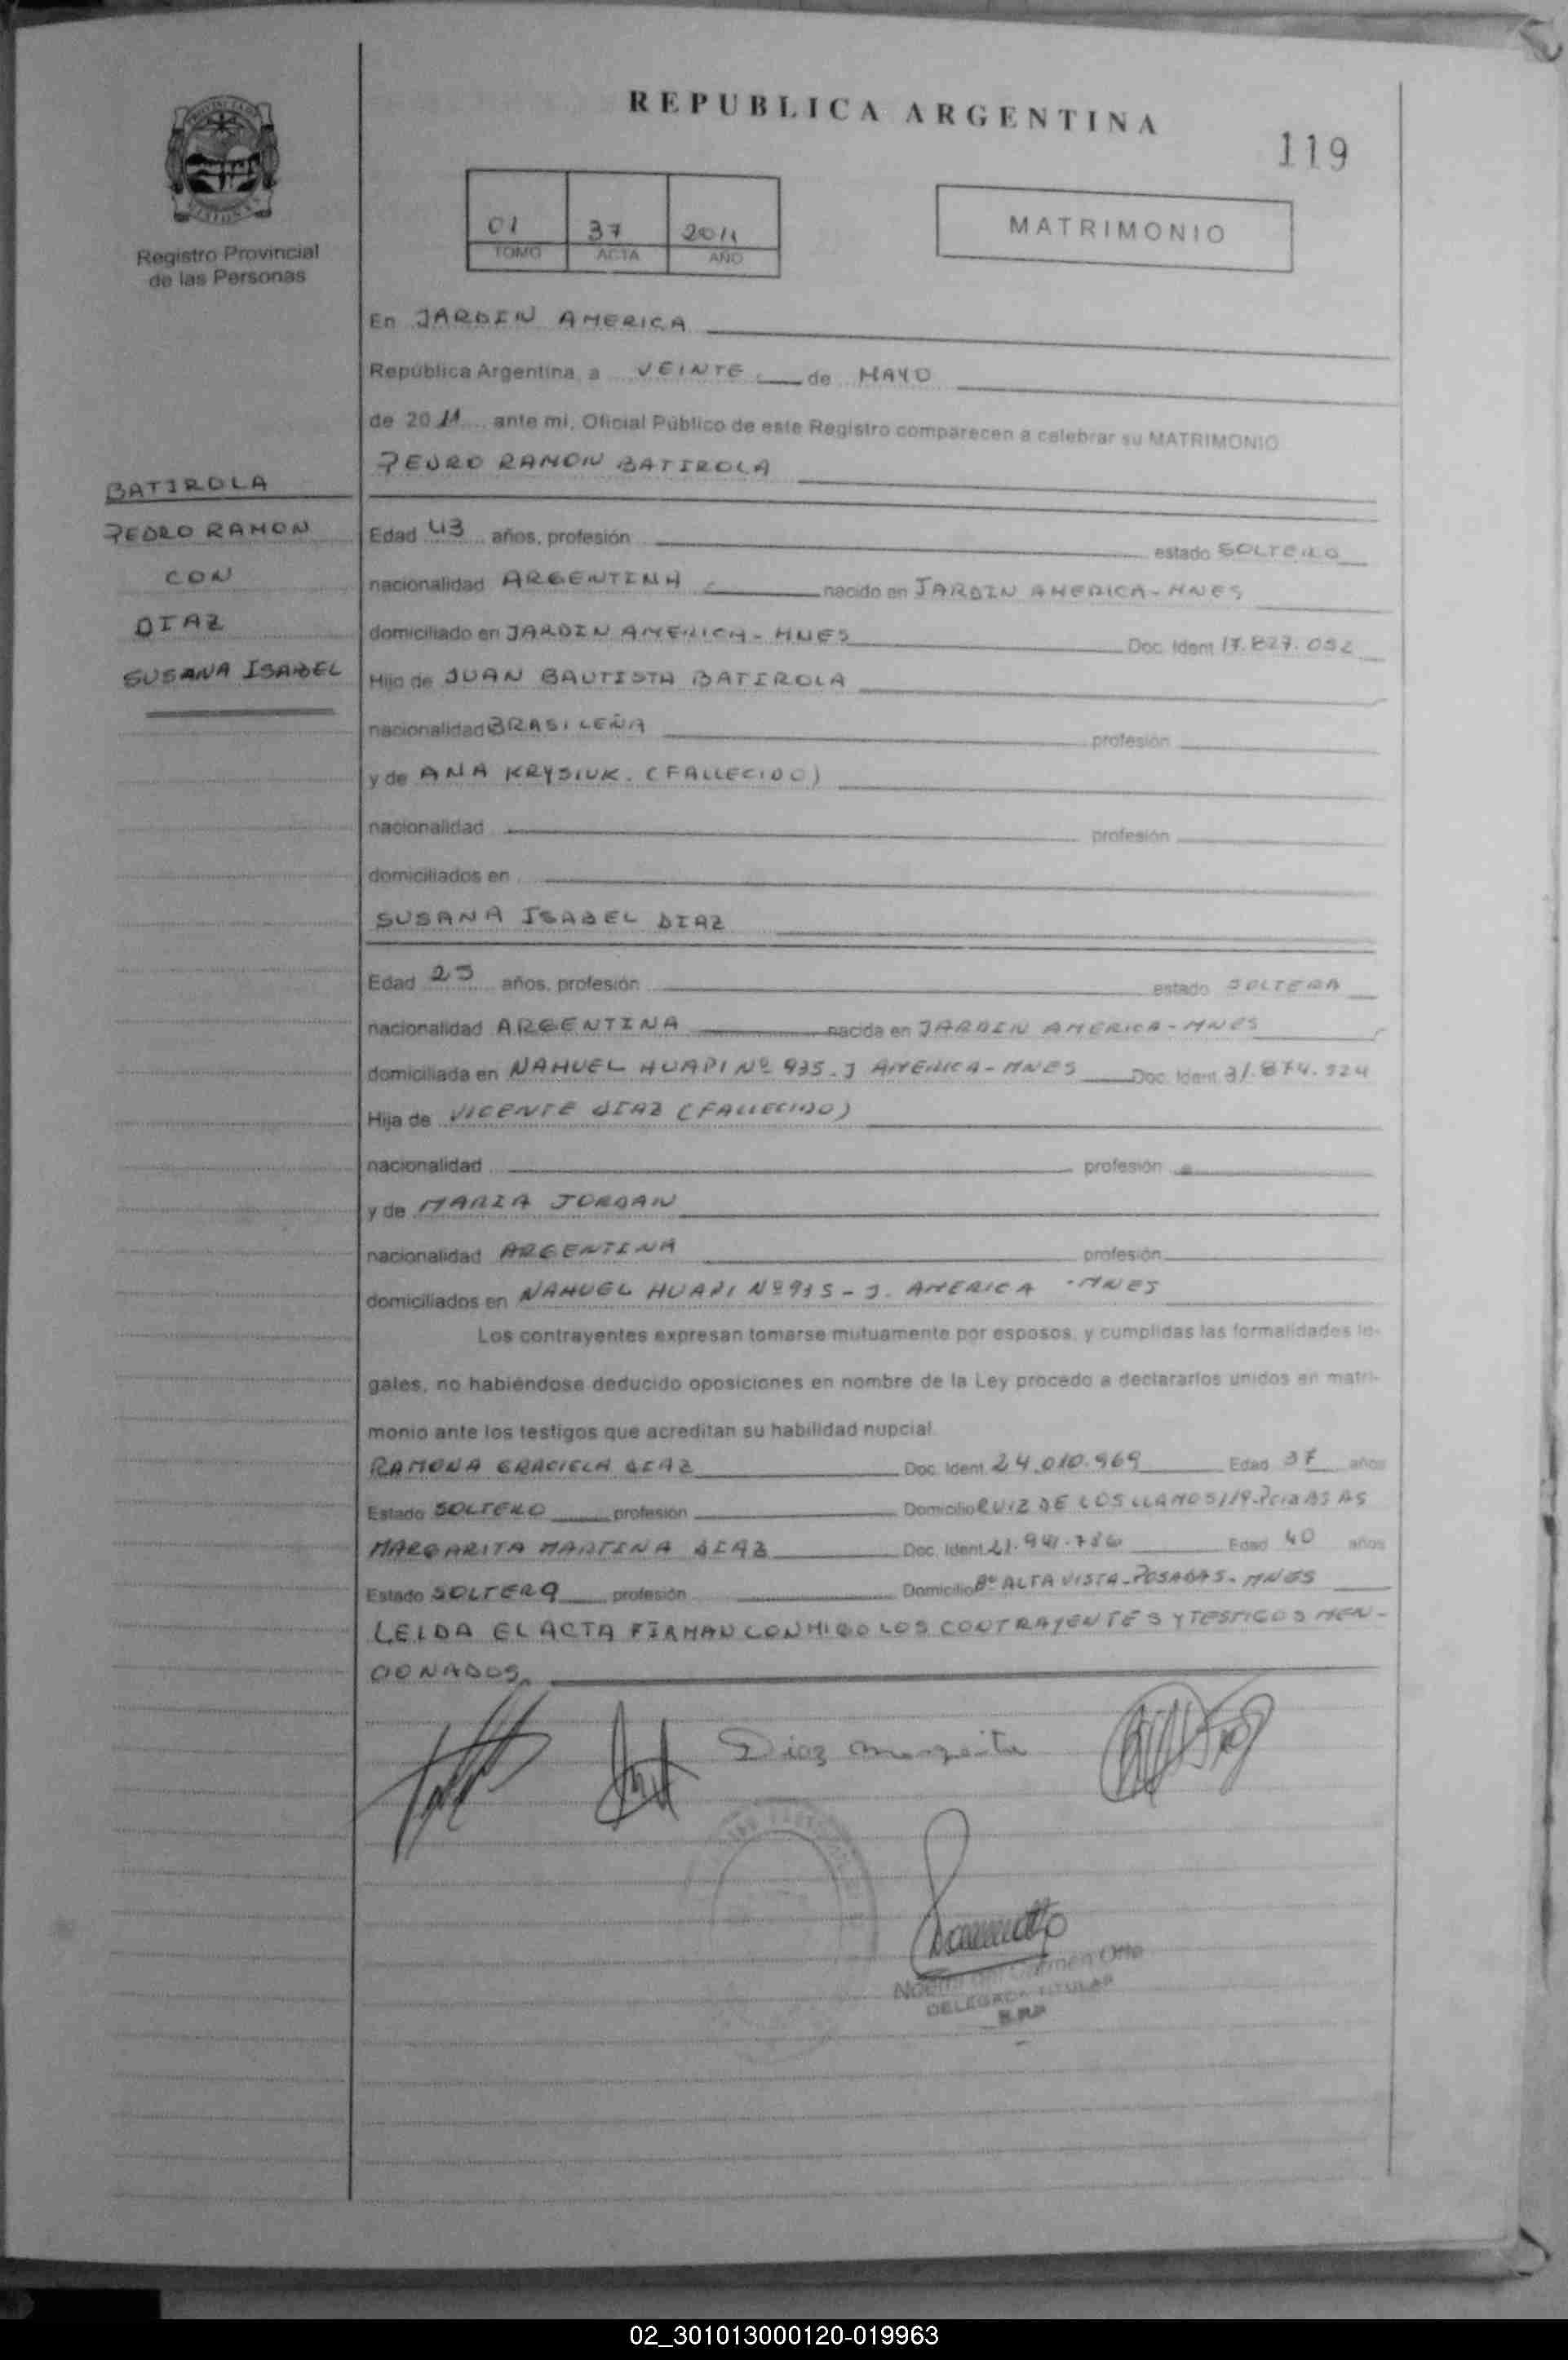 REPUBLICA ARGENTINA
119
01 37 2011
TOMO ACTA AÑO
MATRIMONIO
Registro Provincial
de las Personas
En JARDIN AMERICA
República Argentina, a VEINTE de MAYO
de 2011 ante mi, Oficial Público de este Registro comparecen a celebrar su MATRIMONIO
PEDRO RAMON BATIROLA
BATIROLA
PEDRO RAMON
CON
DIAZ
SUSANA ISABEL
Edad 43 años, profesión estado SOLTERO
nacionalidad ARGENTINA nacido en JARDIN AMERICA - MNES
domiciliado en JARDIN AMERICA - MNES Doc. Ident. 17.827.092
Hijo de JUAN BAUTISTA BATIROLA
nacionalidad BRASILEÑA profesión
y de ANA KRYSIUK. (FALLECIDO)
nacionalidad profesión
domiciliados en
SUSANA ISABEL DIAZ
Edad 25 años, profesión estado SOLTERA
nacionalidad ARGENTINA nacida en JARDIN AMERICA - MNES
domiciliada en NAHUEL HUAPI Nº 935 - J AMERICA - MNES Doc. Ident. 31.874.524
Hija de VICENTE DIAZ (FALLECIDO)
nacionalidad profesión
y de MARIA JORDAN
nacionalidad ARGENTINA profesión
domiciliados en NAHUEL HUAPI Nº 935 - J. AMERICA - MNES
Los contrayentes expresan tomarse mutuamente por esposos, y cumplidas las formalidades le-
gales, no habiéndose deducido oposiciones en nombre de la Ley procedo a declararlos unidos en matri-
monio ante los testigos que acreditan su habilidad nupcial.
RAMONA GRACIELA DIAZ Doc. Ident. 24.010.969 Edad 37 años
Estado SOLTERO profesión Domicilio RUIZ DE LOS LLANOS 119-Pcia BS AS
MARGARITA MARTINA DIAZ Doc. Ident. 21.941.736 Edad 40 años
Estado SOLTERA profesión Domicilio Bº ALTA VISTA - POSADAS - MNES
LEIDA EL ACTA FIRMAN CONMIGO LOS CONTRAYENTES Y TESTIGOS MEN-
CIONADOS.
Diaz Margarita
DELEGADA TITULAR
02_301013000120-019963